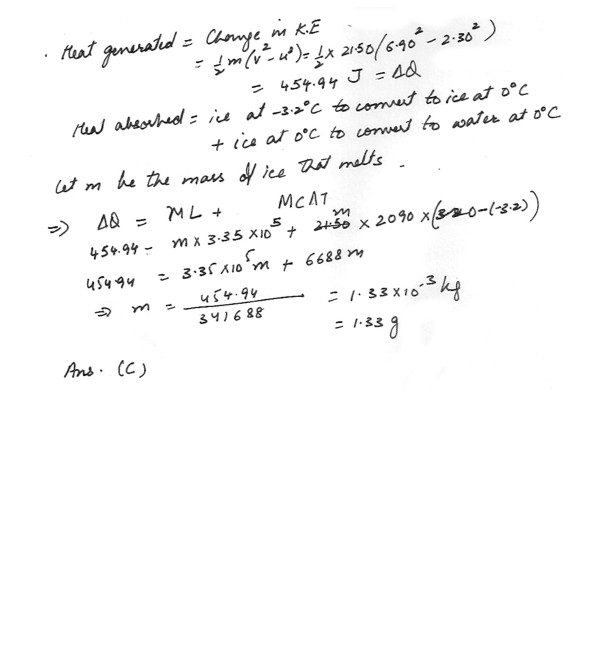 . Heat generated = Change in K.E
= 1/2 m(v² - u²) = 1/2 x 21.50 (6.90² - 2.30²)
= 454.94 J = ΔQ
Heat absorbed = ice at -3.2°C to convert to ice at 0°C
+ ice at 0°C to convert to water at 0°C
Let m be the mass of ice that melts.
⇒ ΔQ = ML + MCΔT
454.94 = m x 3.35 x10⁵ + m x 2090 x (0-(-3.2))
454.94 = 3.35 x10⁵m + 6688 m
⇒ m = 454.94 / 341688 = 1.33 x 10⁻³ kg
= 1.33 g
Ans. (C)